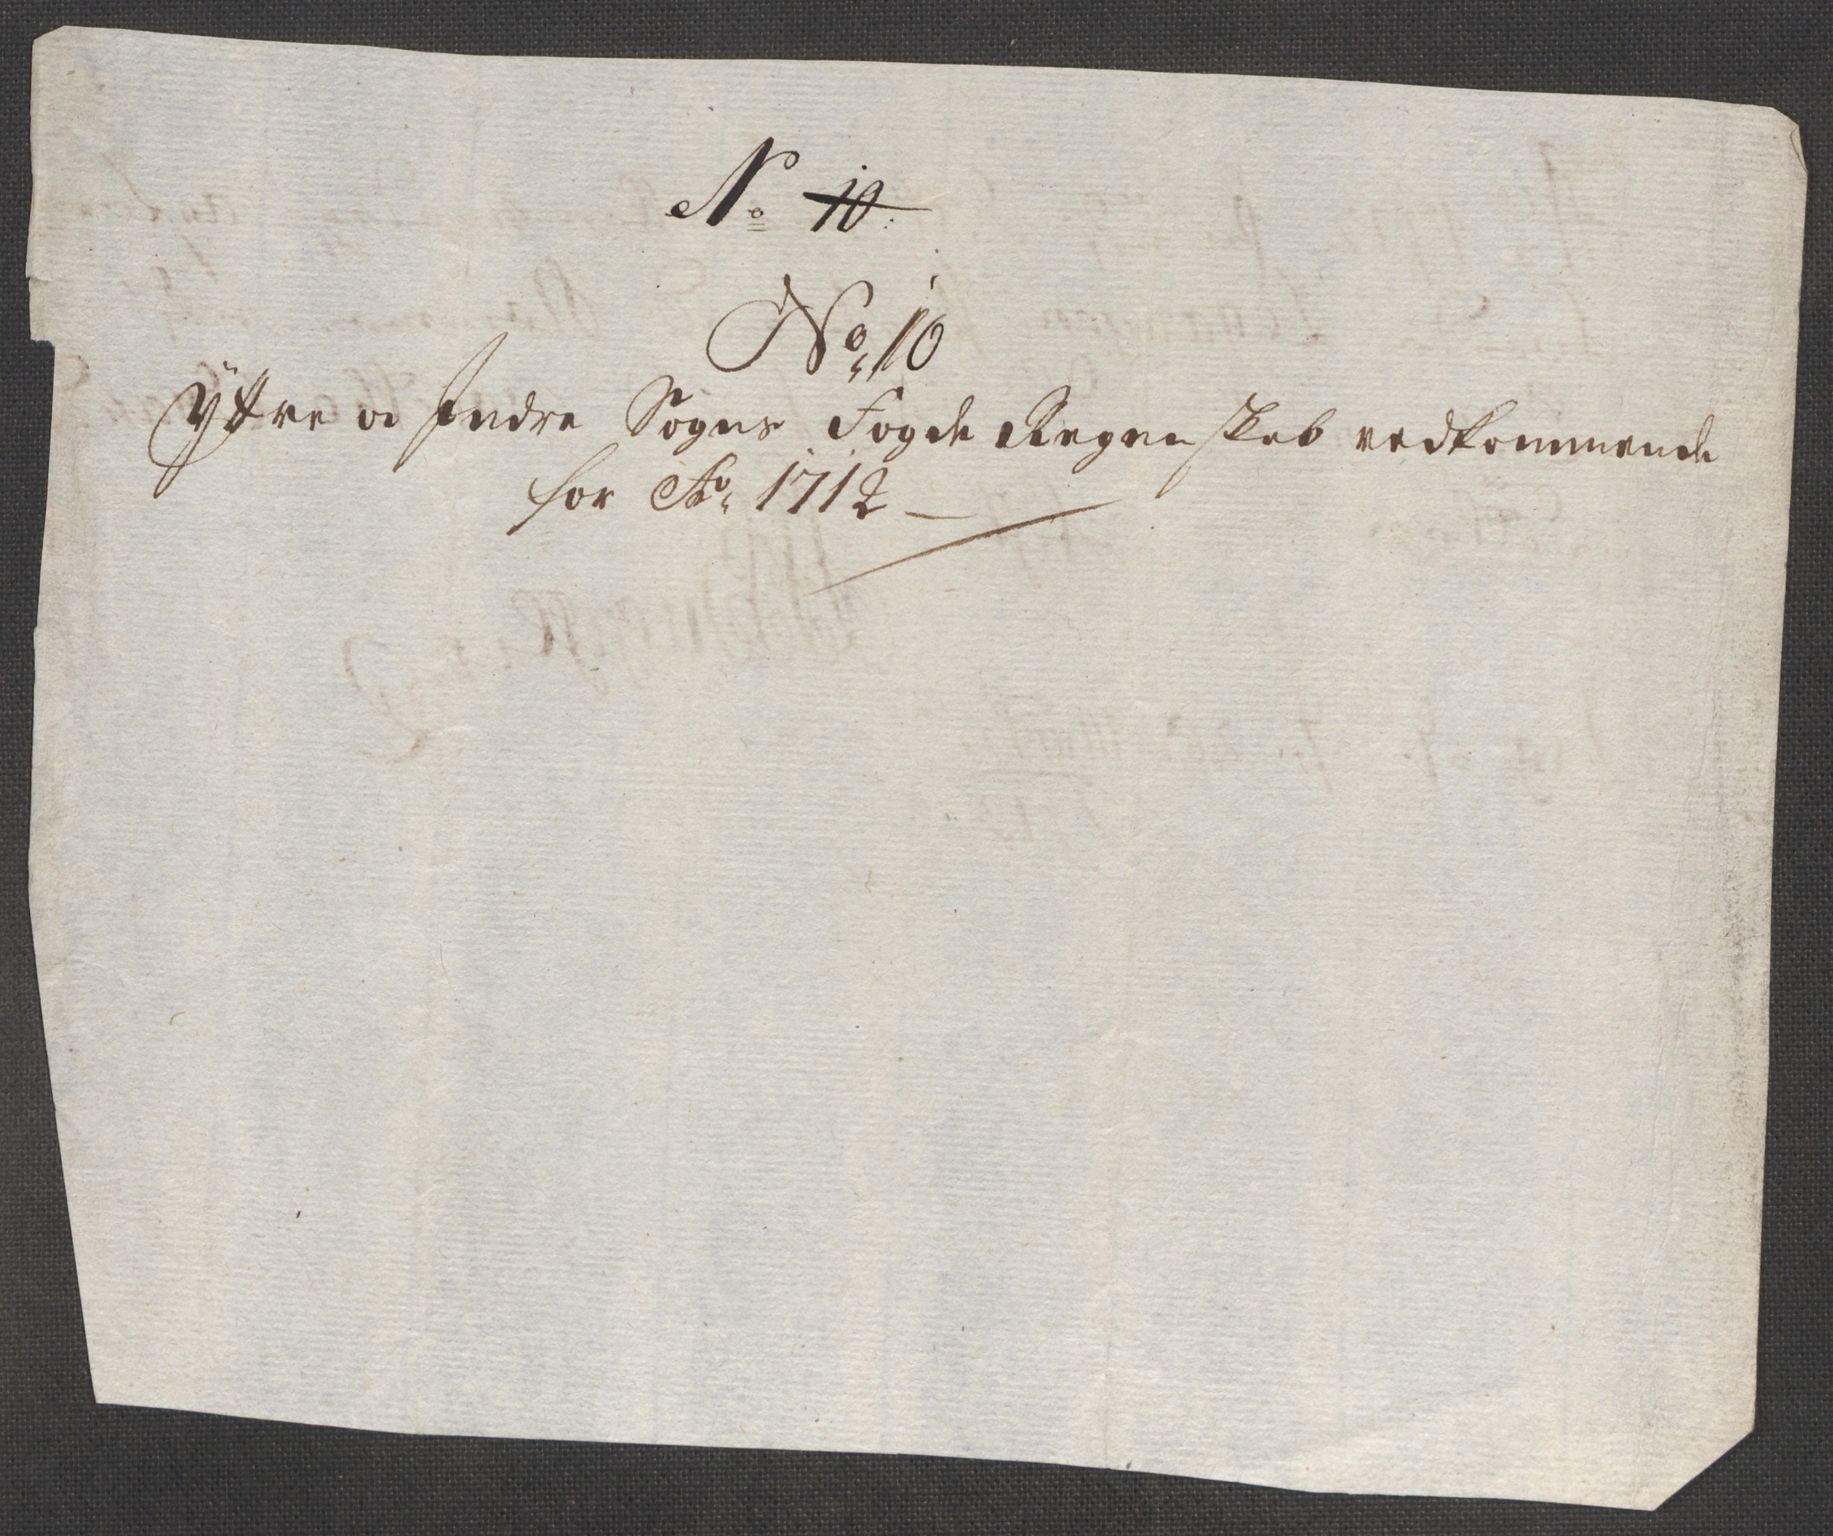 No 10
No 10
Yttre oc Indre Sogns Fogde Regenskab vedkommende
for Ao 1712